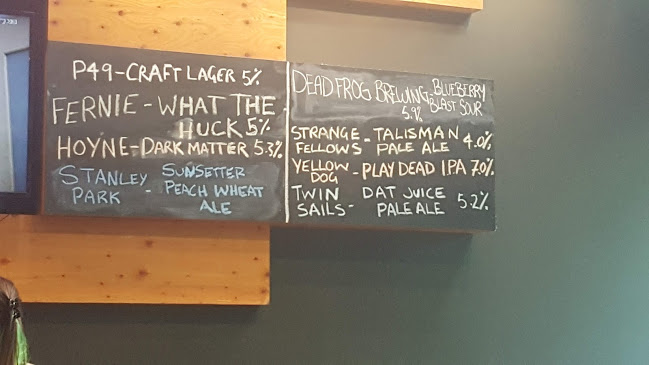 P49-CRAFT LAGER 5%
FERNIE - WHAT THE
HUCK 5%
HOYNE-DARK MATTER 5.3%
STANLEY PARK - SUNSETTER PEACH WHEAT ALE
DEAD FROG BREWING- BLUEBERRY BLAST SOUR
5.9%
STRANGE FELLOWS - TALISMAN PALE ALE 4.0%
YELLOW DOG - PLAY DEAD I.PA 7.0%
TWIN SAILS - DAT JUICE PALE ALE 5.2%